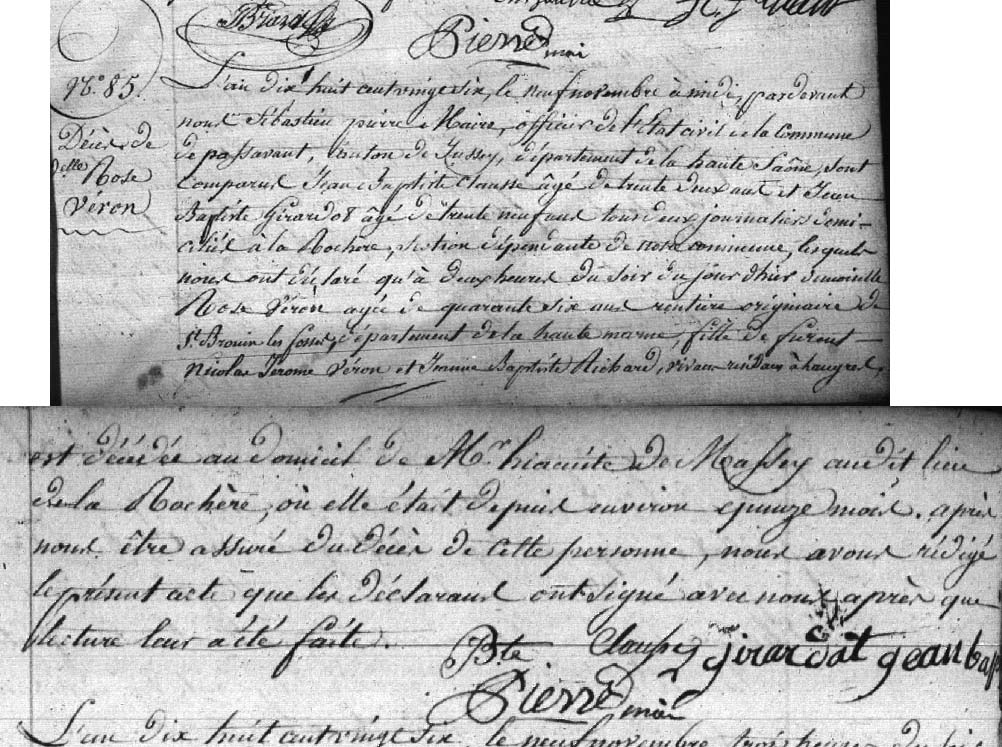 Pierre maire
N.º 85.
Décès de
delle Rose
Véron
L'an dix huit cent vingt six, le neuf novembre à midi, pardevant
nous Sébastien pierre Maire, officier de l'État civil de la Commune
de passavant, Canton de Jussey, département de la haute Saône, sont
comparus Jean Baptiste Clausse âgé de trente deux ans et Jean
Baptiste Girardot âgé de trente neuf ans tous deux journaliers domi-
ciliés à la Rochere, section dépendante de notre commune, lesquels
nous ont déclaré qu'à deux heures du soir du jour d'hier demoiselle
Rose Véron agée de quarante six ans rentiere originaire de
St Broin les fosses, département de la haute marne, fille de furent
Nicolas Jérome Véron et Jeanne Baptiste Richard, vivans résidans à
est décédée au domicil de Mr. hiacinte de Massey audit lieu
de la Rochère, où elle était depuis environ quinze mois. après
nous être assuré du décès de cette personne, nous avons rédigé
le présent acte que les déclarans ont signé avec nous après que
lecture leur a été faite.
Bte Clausse girardot gean bap
Pierre maire
L'an dix huit cent vingt six, le neuf novembre, trois heures du